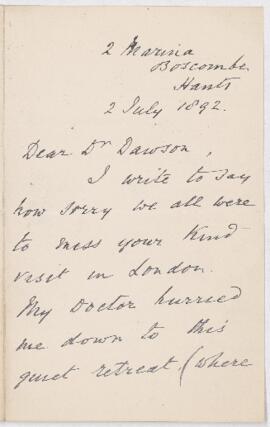 2 Marina
Boscombe.
Hants
2 July 1892.
Dear Dr Dawson,
I write to say
how sorry we all were
to miss your kind
visit in London.
My Doctor hurried
me down to this
quiet retreat. (where